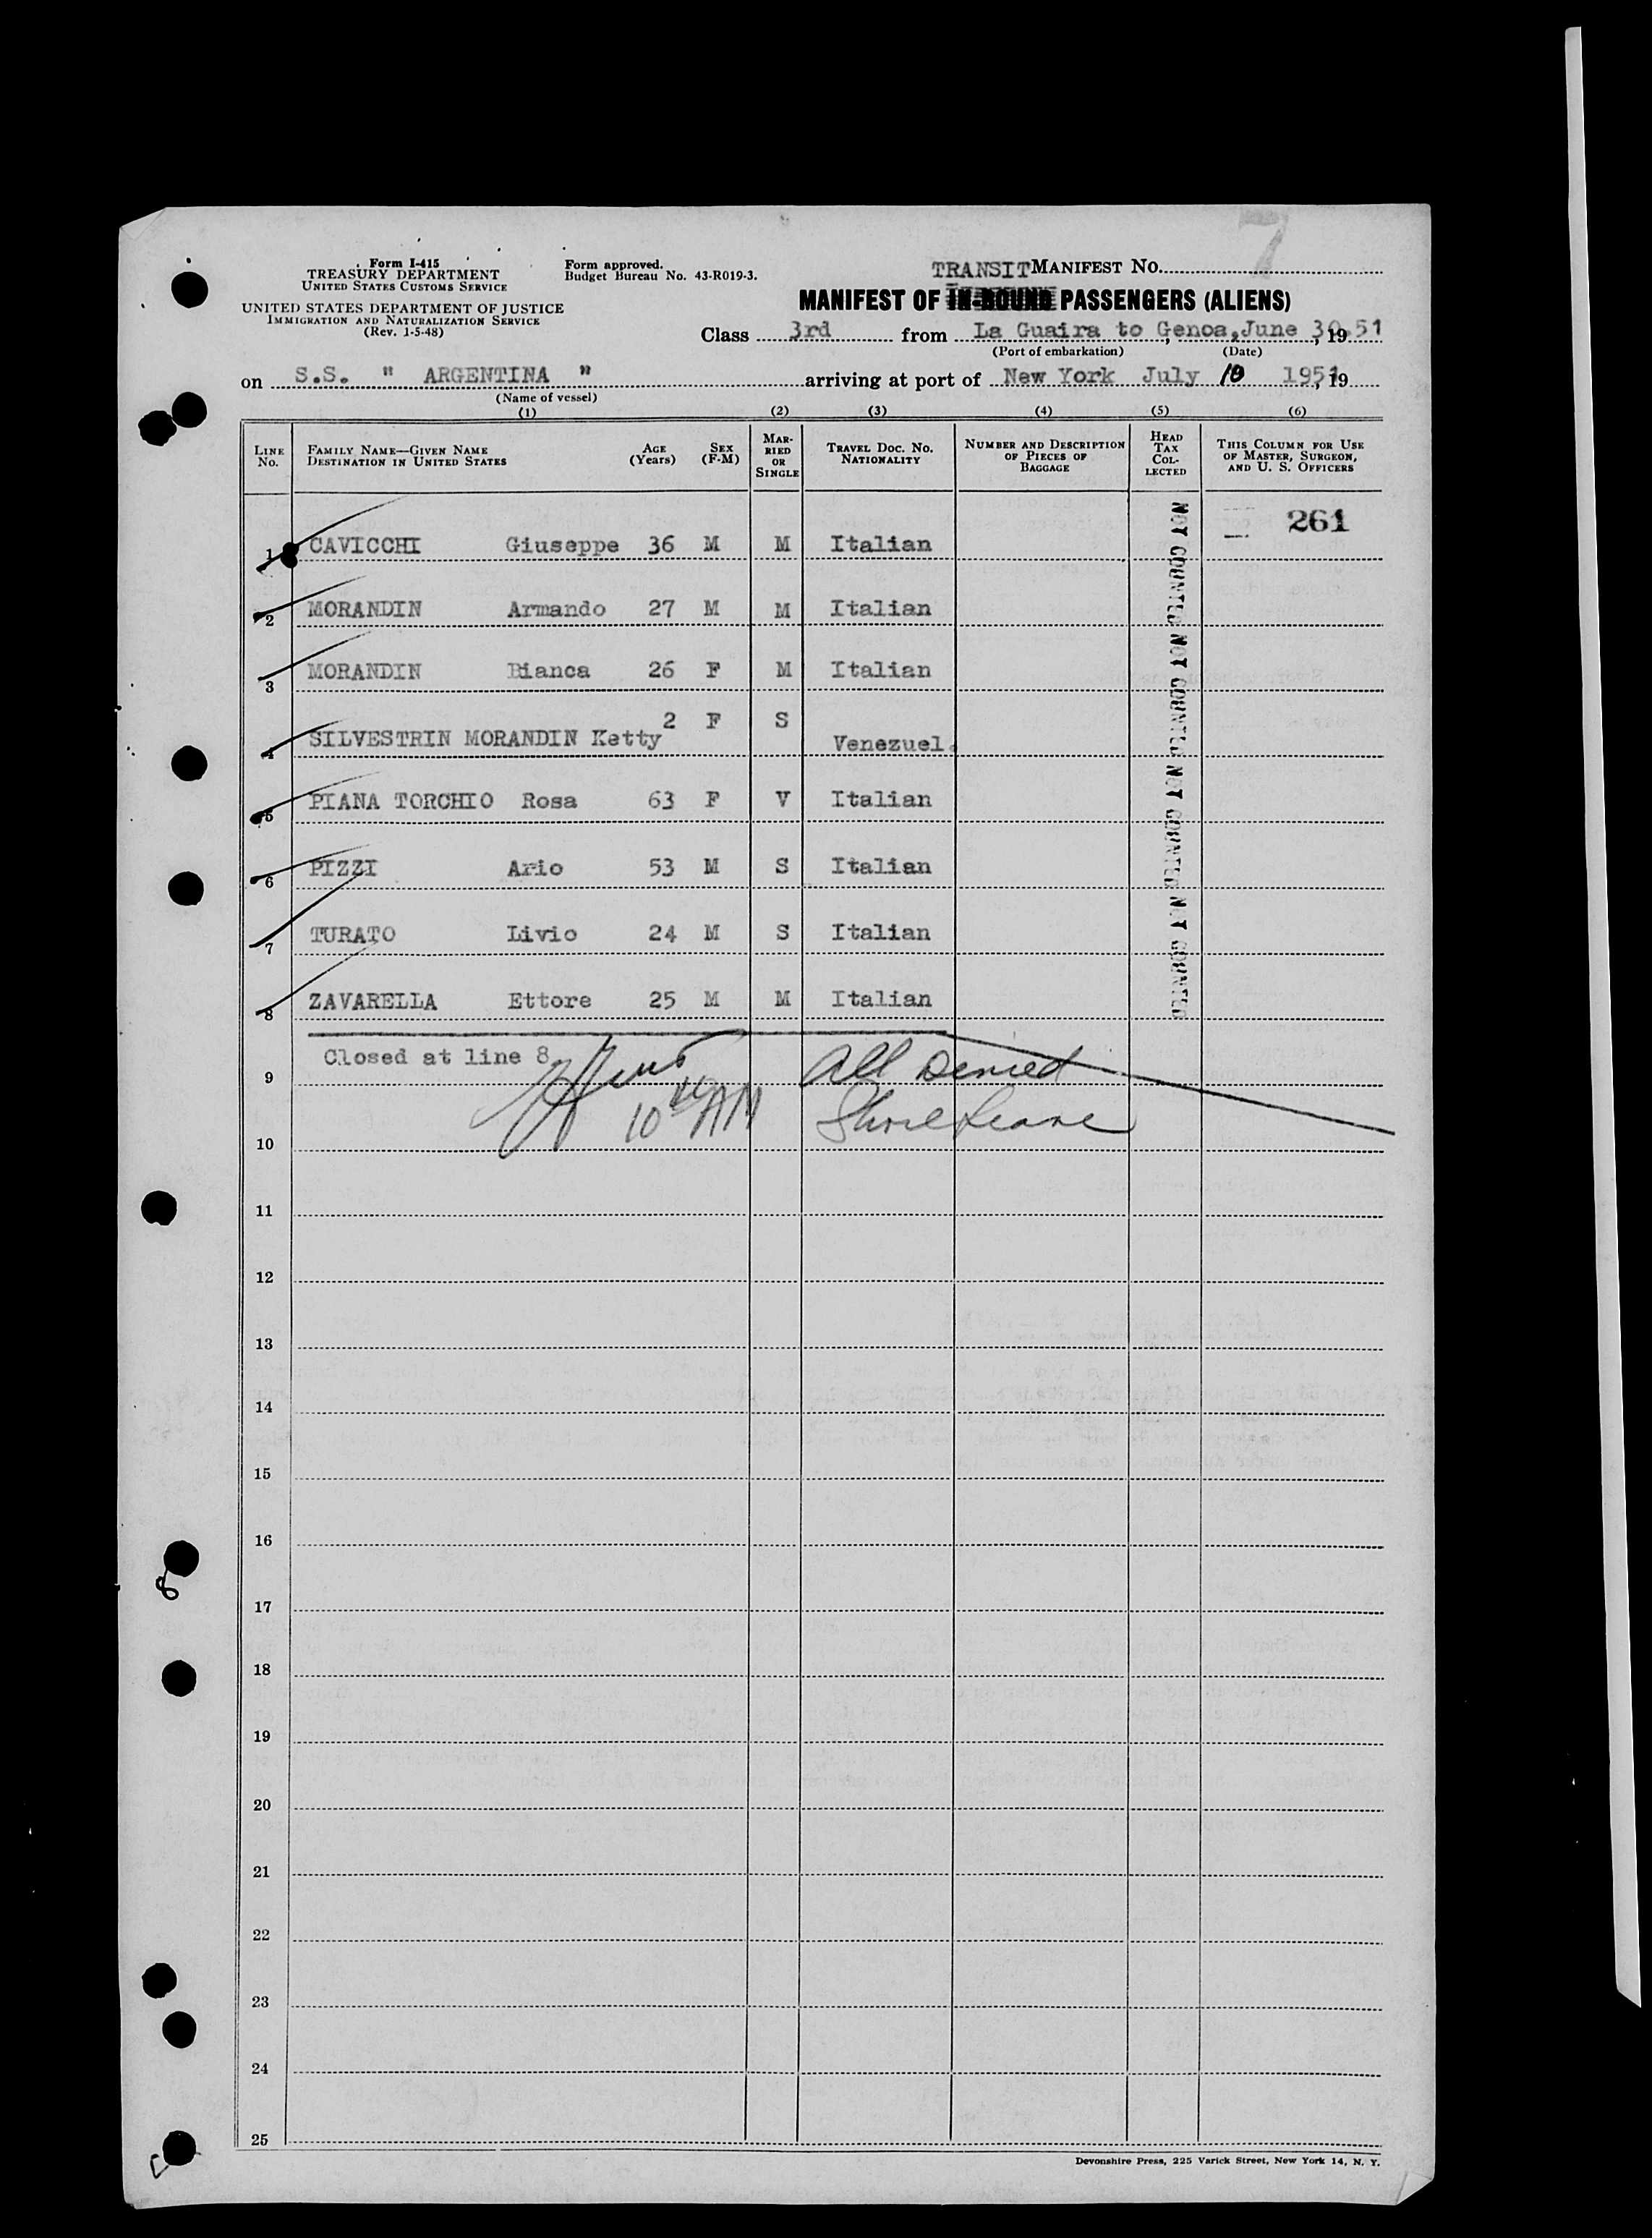 7
Form I-415
TREASURY DEPARTMENT
UNITED STATES CUSTOMS SERVICE
UNITED STATES DEPARTMENT OF JUSTICE
IMMIGRATION AND NATURALIZATION SERVICE
(Rev. 1-5-48)
Form approved.
Budget Bureau No. 43-R019-3.
TRANSIT MANIFEST NO.
MANIFEST OF IN-BOUND PASSENGERS (ALIENS)
Class 3rd from La Guaira to Genoa, June 30, 19 51
(Port of embarkation) (Date)
on S.S. " ARGENTINA " arriving at port of New York July 10 1951, 19
(Name of vessel)
(1) (2) (3) (4) (5) (6)
LINE NO. FAMILY NAME—GIVEN NAME DESTINATION IN UNITED STATES AGE (Years) SEX (F-M) MARRIED OR SINGLE TRAVEL DOC. NO. NATIONALITY NUMBER AND DESCRIPTION OF PIECES OF BAGGAGE HEAD TAX COLLECTED THIS COLUMN FOR USE OF MASTER, SURGEON, AND U. S. OFFICERS
261
1 CAVICCHI Giuseppe 36 M M Italian
2 MORANDIN Armando 27 M M Italian
3 MORANDIN Bianca 26 F M Italian
4 SILVESTRIN MORANDIN Ketty 2 F S Venezuel.
5 PIANA TORCHIO Rosa 63 F V Italian
6 PIZZI Ario 53 M S Italian
7 TURATO Livio 24 M S Italian
8 ZAVARELLA Ettore 25 M M Italian
NOT COUNTED NOT COUNTED NOT COUNTED NOT COUNTED
Closed at line 8
9 All Denied
10th AM Shore Leave
10
11
12
13
14
15
16
17
18
19
20
21
22
23
24
25
8
Devonshire Press, 225 Varick Street, New York 14, N. Y.